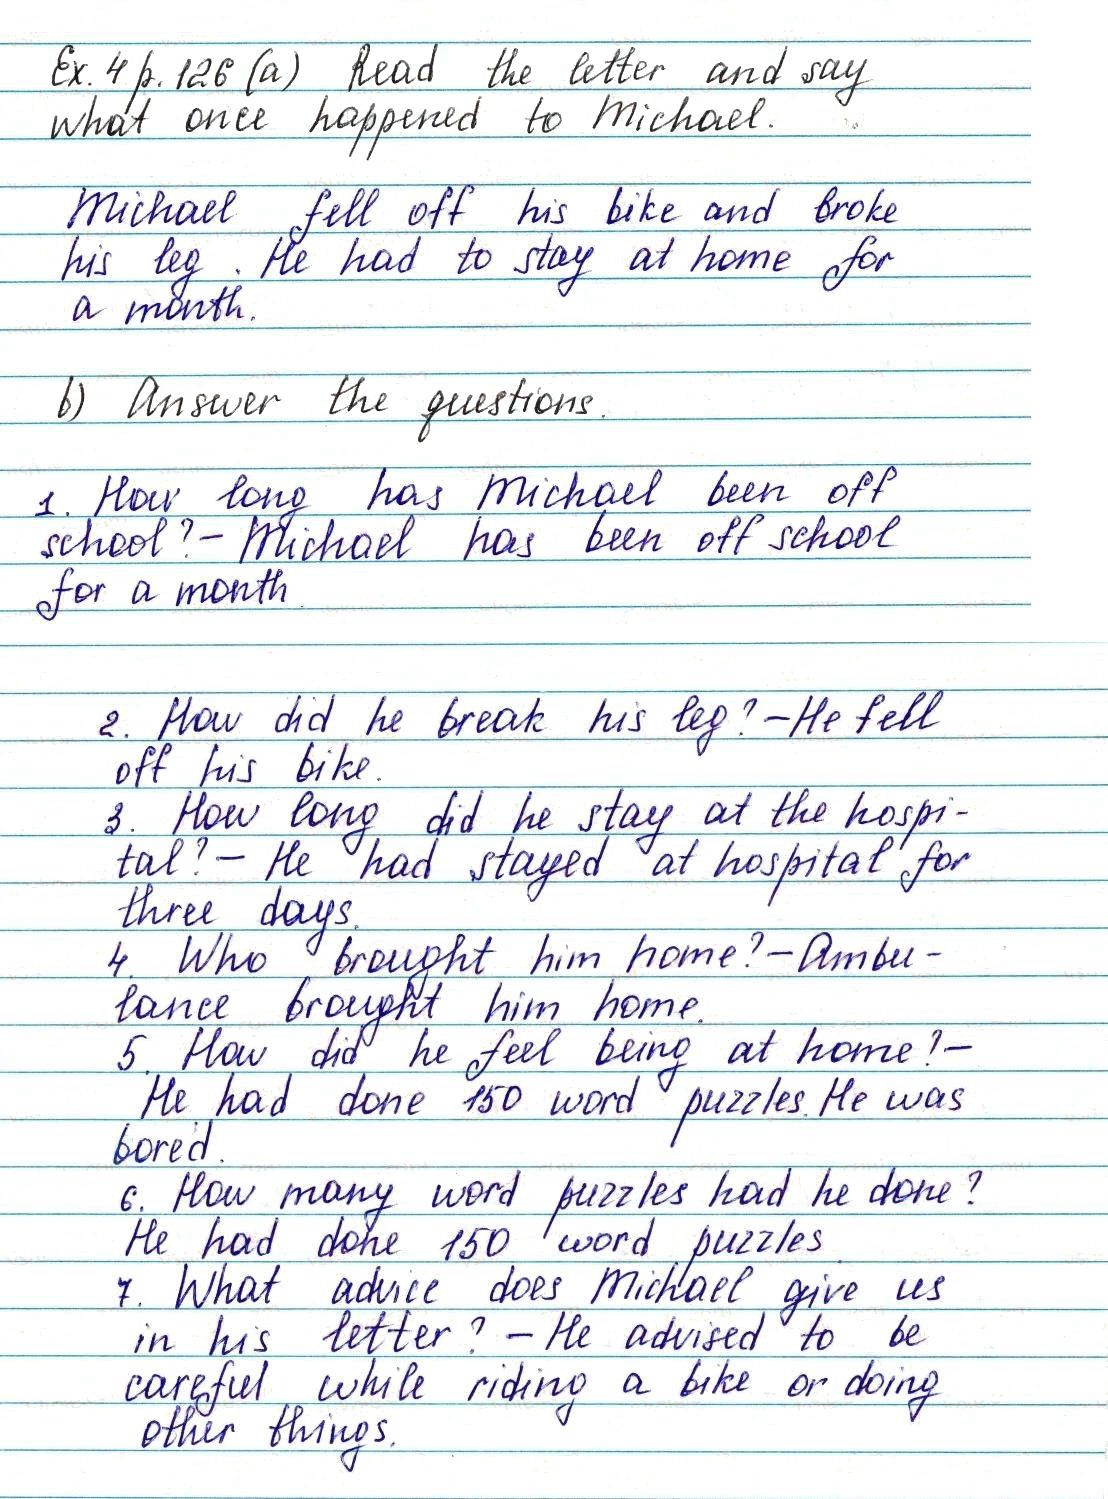 Ex. 4 p. 126 (a) Read the letter and say
what once happened to Michael.
Michael fell off his bike and broke
his leg. He had to stay at home for
a month.
b) Answer the questions.
1. How long has Michael been off
school? – Michael has been off school
for a month
2. How did he break his leg? – He fell
off his bike.
3. How long did he stay at the hospi-
tal? – He had stayed at hospital for
three days.
4. Who brought him home? – Ambu-
lance brought him home.
5. How did he feel being at home? –
He had done 150 word puzzles. He was
bored.
6. How many word puzzles had he done?
He had done 150 word puzzles
7. What advice does Michael give us
in his letter? – He advised to be
careful while riding a bike or doing
other things.